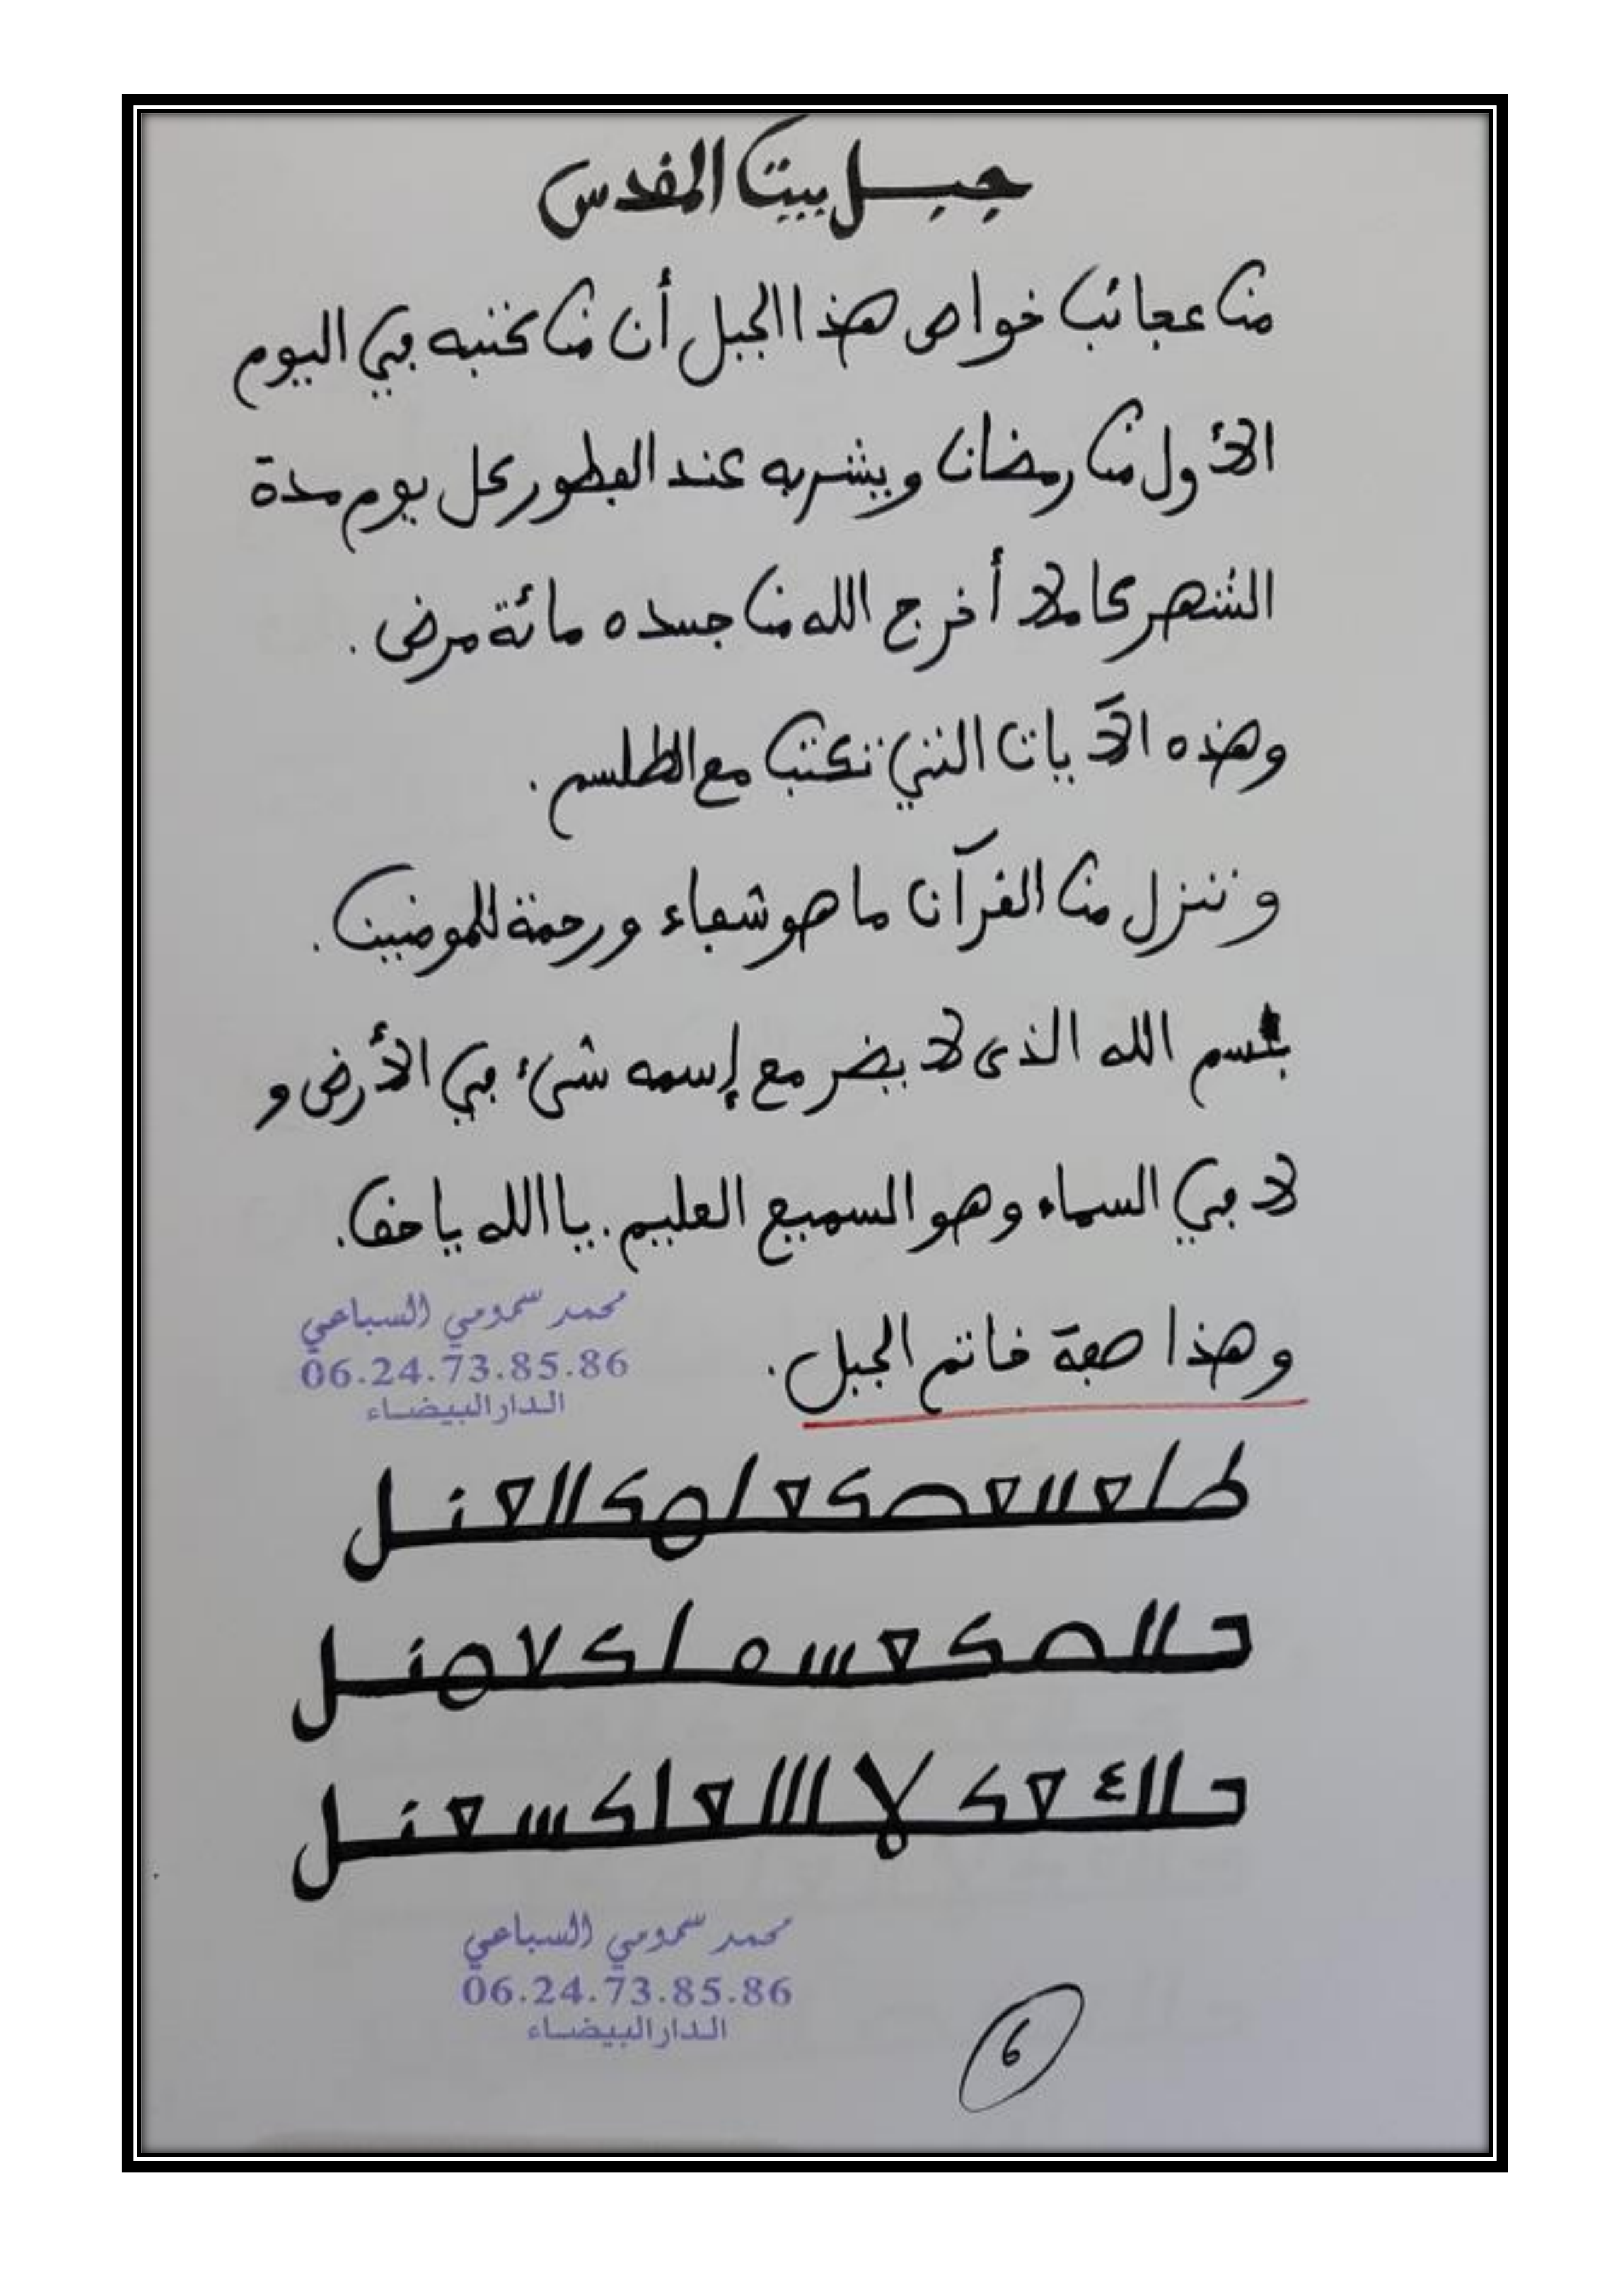 جبل بيت المقدس
من عجائب خواص هذا الجبل أن من كتبه في اليوم
الأول من رمضان ويشربه عند الفطور كل يوم مدة
الشهر كاملا أخرج الله من جسده مائة مرض .
وهذه الآيات التي تكتب مع الطلسم .
وننزل من القرآن ما هو شفاء ورحمة للمومنين .
بسم الله الذى لا يضر مع إسمه شىء في الأرض و
لا في السماء وهو السميع العليم . يا الله يا حق .
وهذا صفة خاتم الجبل .
محمد سمومي السباعي
06.24.73.85.86
الدار البيضاء
محمد سمومي السباعي
06.24.73.85.86
الدار البيضاء
6